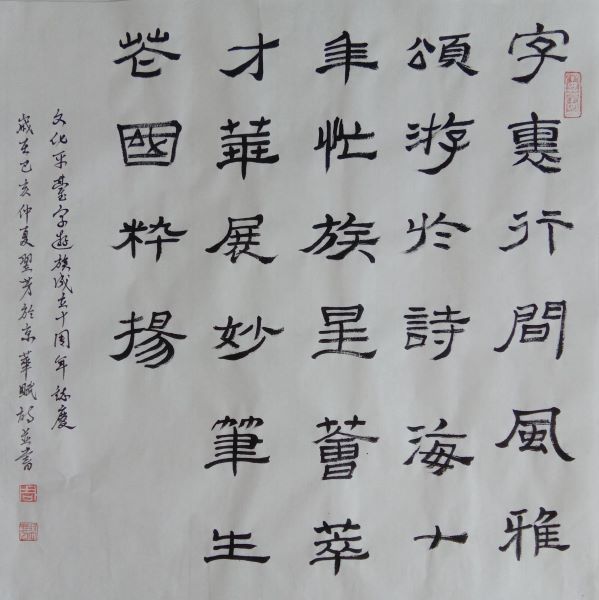 字裏行間風雅
頌游於詩海十
年忙族星薈萃
才華展妙筆生
花國粹揚
文化平臺字遊族成立十周年誌慶
歲在己亥仲夏翌芳於京華賦詩並書